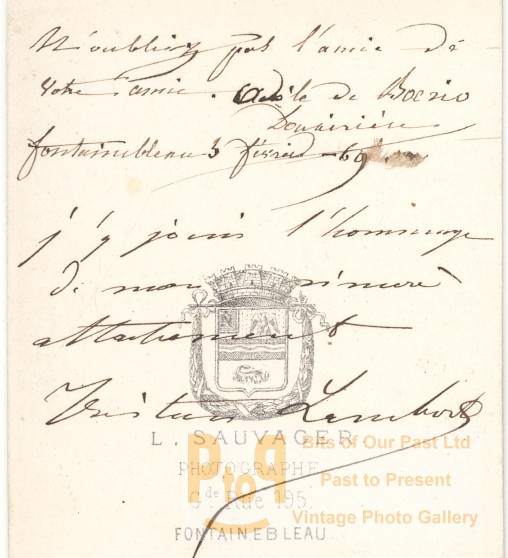 N'oubliez pas l'amie de
votre amie. Adèle de Bocrio
Douairière
fontainebleau 5 février 69
j'y joins l'hommage
de mon sincère
attachement
Tristan Lambert
L. SAUVAGER
PHOTOGRAPHE
Gde Rue 195.
FONTAINEBLEAU
PtoP
Bits of Our Past Ltd
Past to Present
Vintage Photo Gallery